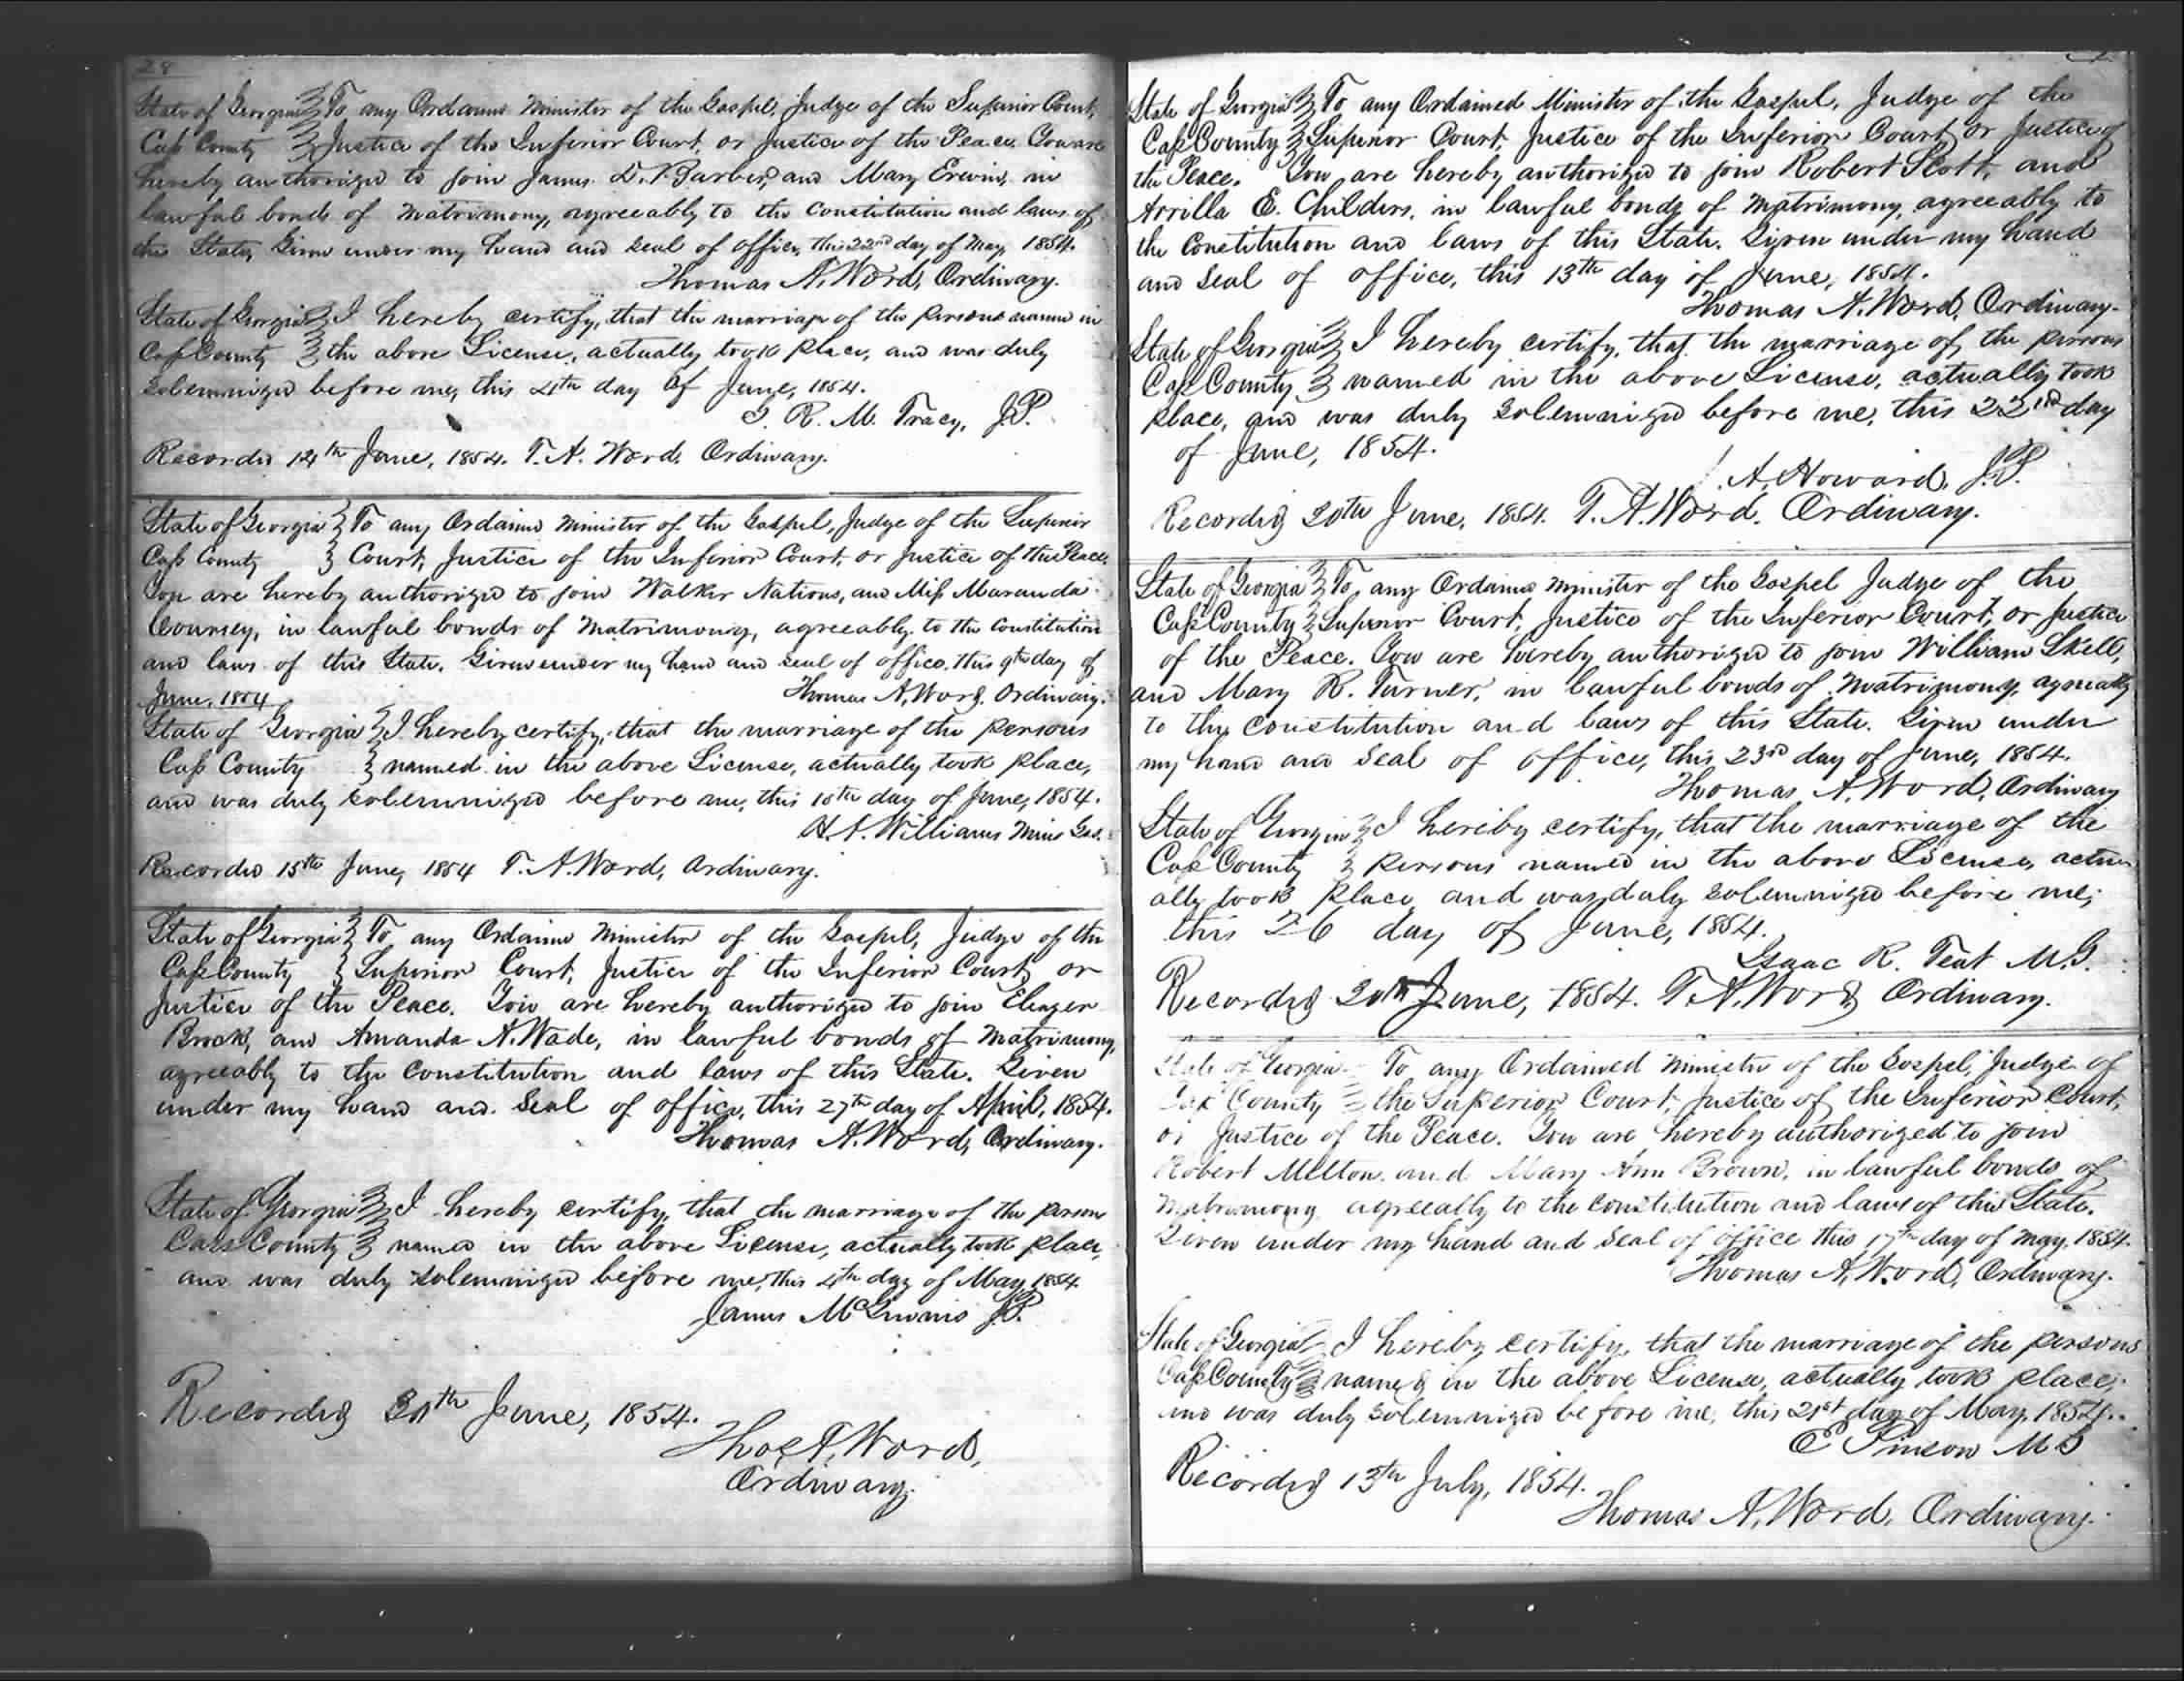 28
State of Georgia To any Ordained Minister of the Gospel, Judge of the Superior Court,
Cass County Justice of the Inferior Court, or Justice of the Peace. You are
hereby authorized to join James D. Barber, and Mary Erwin, in
lawful bonds of Matrimony, agreeably to the Constitution and laws of
the State, Given under my hand and seal of office, this 22nd day of May, 1854.
Thomas A. Word, Ordinary.
State of Georgia I hereby certify, that the marriage of the persons named in
Cass County the above License, actually took place, and was duly
solemnized before me, this 4th day of June, 1854.
R. M. Tracy, J.P.
Recorded 14th June, 1854. T. A. Word, Ordinary.
State of Georgia To any Ordained Minister of the Gospel, Judge of the Superior
Cass County Court, Justice of the Inferior Court, or Justice of the Peace.
You are hereby authorized to join Walker Nations, and Miss Maranda
Coursey, in lawful bonds of Matrimony, agreeably to the Constitution
and laws of this State. Given under my hand and seal of office, this 9th day of
June, 1854 Thomas A. Word, Ordinary.
State of Georgia I hereby certify, that the marriage of the persons
Cass County named in the above License, actually took place,
and was duly solemnized before me, this 10th day of June, 1854.
Williams Mins Gos.
Recorded 15th June, 1854 T. A. Word, Ordinary.
State of Georgia To any Ordained Minister of the Gospel, Judge of the
Cass County Superior Court, Justice of the Inferior Court, or
Justice of the Peace. You are hereby authorized to join Eleazer
Brock, and Amanda A. Wade, in lawful bonds of Matrimony,
agreeably to the Constitution and laws of this State. Given
under my hand and Seal of office, this 27th day of April, 1854.
Thomas A. Word, Ordinary.
State of Georgia I hereby certify, that the marriage of the person
Cass County named in the above License, actually took place,
and was duly solemnized before me, this 4th day of May, 1854.
James McGinnis J.P.
Recorded 30th June, 1854.
Thos A. Word,
Ordinary.
State of Georgia To any Ordained Minister of the Gospel, Judge of the
Cass County Superior Court, Justice of the Inferior Court, or Justice of
the Peace. You are hereby authorized to join Robert Scott, and
Arrilla E. Childers, in lawful bonds of Matrimony, agreeably to
the Constitution and laws of this State. Given under my hand
and Seal of office, this 13th day of June, 1854.
Thomas A. Word, Ordinary.
State of Georgia I hereby certify, that the marriage of the persons
Cass County named in the above License, actually took
place, and was duly solemnized before me, this 22nd day
of June, 1854.
A. Howard, J.P.
Recorded 30th June, 1854. T. A. Word, Ordinary.
State of Georgia To any Ordained Minister of the Gospel Judge of the
Cass County Superior Court, Justice of the Inferior Court, or Justice
of the Peace. You are hereby authorized to join William Skell,
and Mary R. Turner, in lawful bonds of Matrimony, agreeably
to the Constitution and laws of this State. Given under
my hand and Seal of office, this 23rd day of June, 1854.
Thomas A. Word, Ordinary
State of Georgia I hereby certify, that the marriage of the
Cass County persons named in the above License, actu
ally took place, and was duly solemnized before me,
this 26 day of June, 1854.
Isaac R. Teat M.G.
Recorded 30th June, 1854. T. A. Word, Ordinary.
State of Georgia To any Ordained Minister of the Gospel, Judge of
Cass County the Superior Court, Justice of the Inferior Court,
or Justice of the Peace. You are hereby authorized to join
Robert Milton and Mary Ann Brown, in lawful bonds of
Matrimony, agreeably to the Constitution and laws of this State.
Given under my hand and Seal of office this 17th day of May, 1854.
Thomas A. Word, Ordinary.
State of Georgia I hereby certify, that the marriage of the persons
Cass County named in the above License, actually took place,
and was duly solemnized before me, this 21st day of May, 1854.
Pinson M G
Recorded 13th July, 1854.
Thomas A. Word, Ordinary.